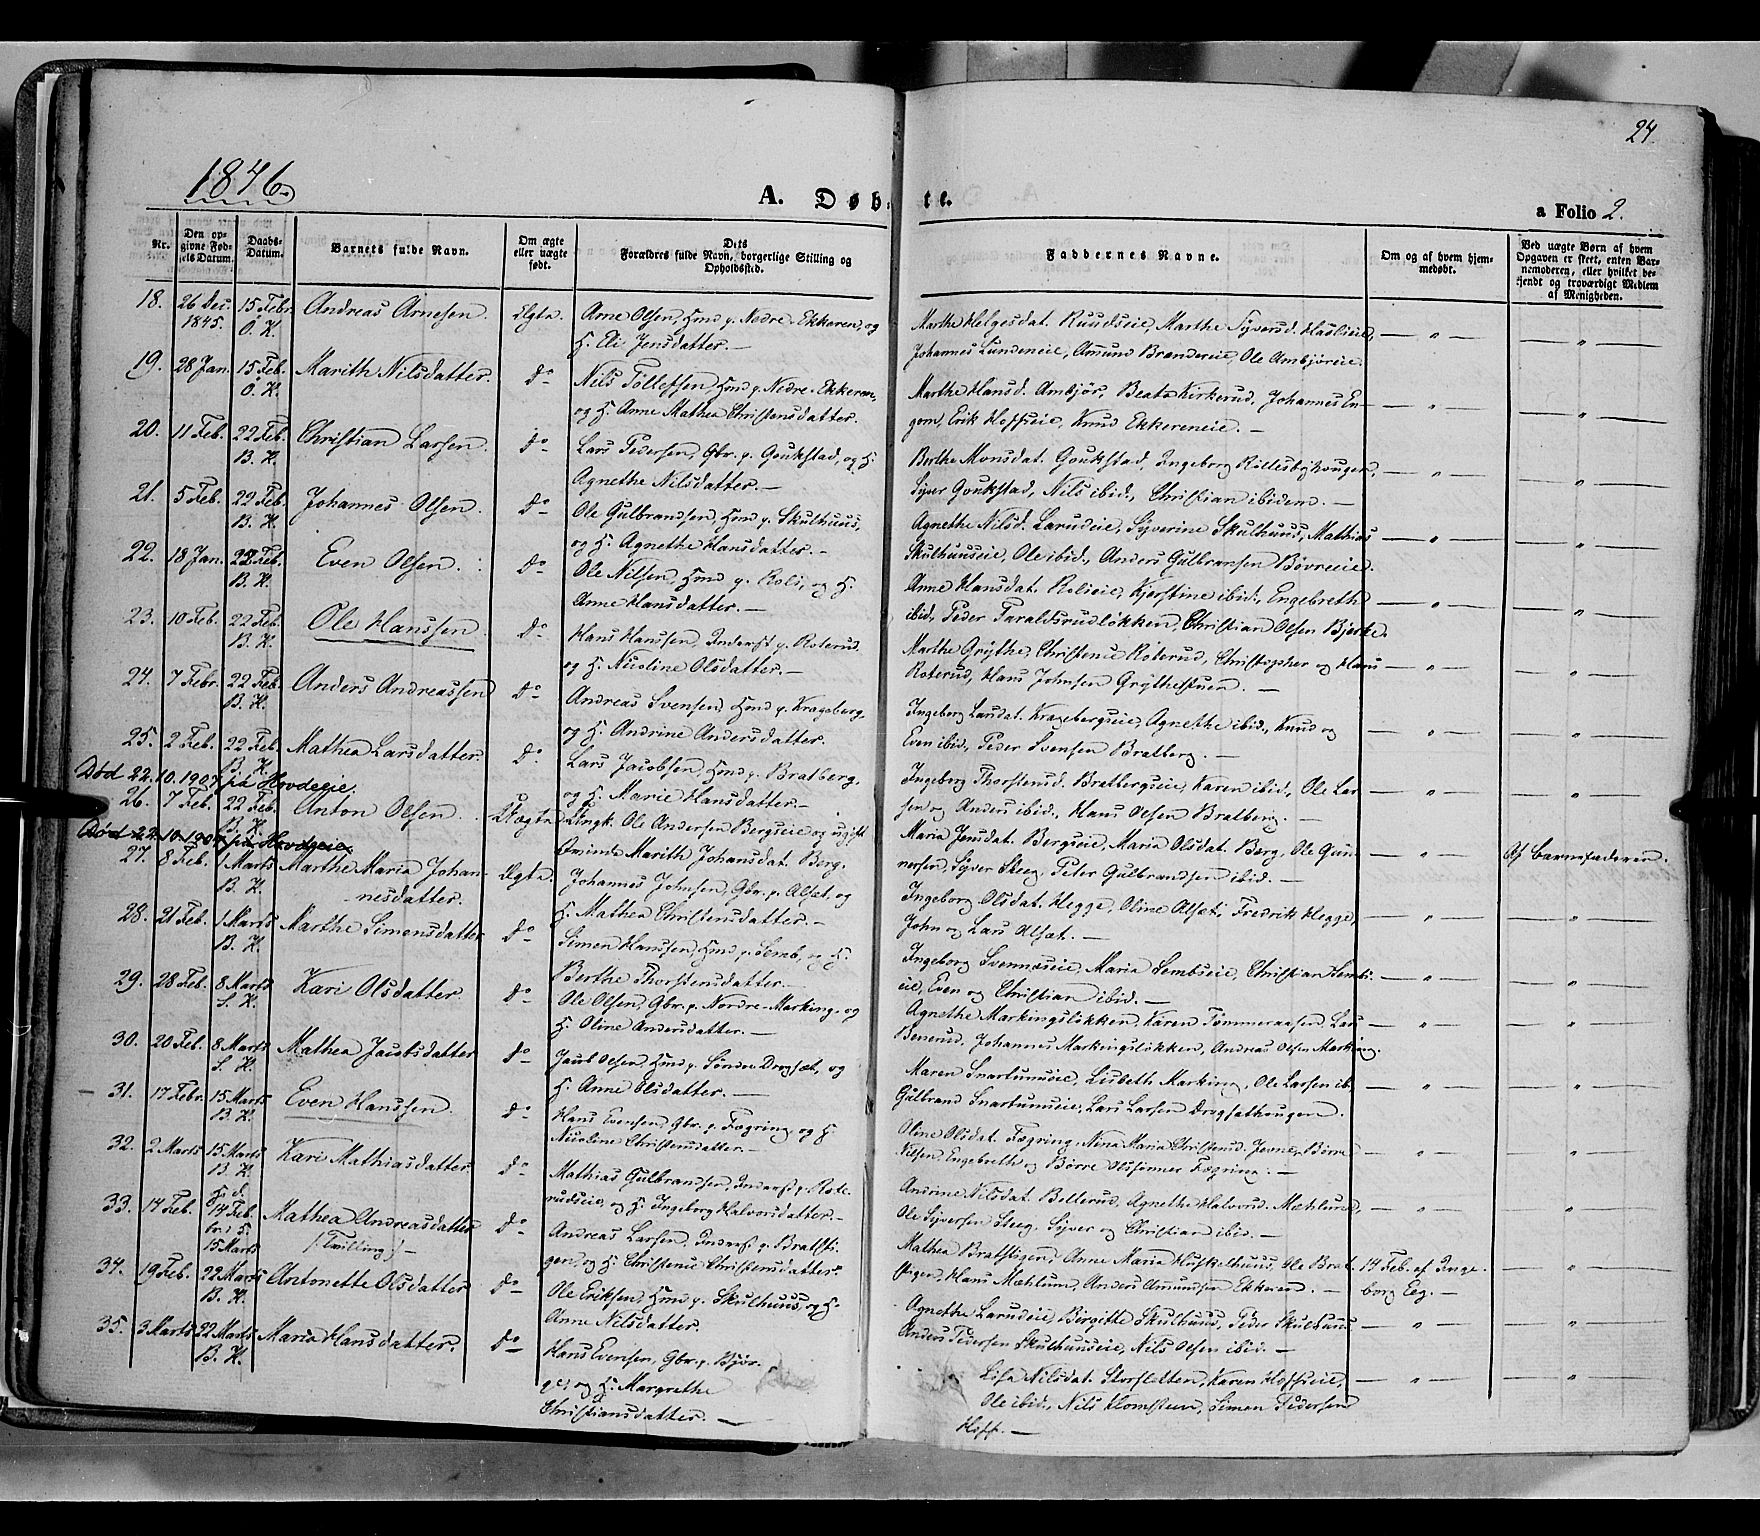 24.
1846.
A. Døbte.
a Folio 2.
Nr.
Den opgivne Fødsels Datum.
Daabs-Datum.
Barnets fulde Navn.
Om ægte eller uægte født.
Dets Forældres fulde Navn, borgerlige Stilling og Opholdssted.
Faddernes Navne.
Om og af hvem hjemmedøbt.
Ved uægte Børn af hvem Opgaven er skeet, enten Barnemoderen, eller hvilket bekjendt og troværdigt Medlem af Menigheden.
18. 26 Dec. 1845. 15 Febr. Ö. K. Andreas Arnesen. Ægte.
Arne Olsen, Hmd p. Nedre-Ekkeren, og
H. Eli Jensdatter. —
Marthe Helgesdat. Ruudseie, Marthe Syversd. Haslieie,
Johannes Lundeneie, Amund Brændereie, Ole Ambjöreie.
19. 28 Jan. 15 Feb. Ö. K. Marith Nilsdatter. Do
Nils Tollefsen, Hmd p. Nedre-Ekkeren,
og H. Anne Mathea Christensdatter.
Marthe Hansd. Ambjör, Beate Kirkerud, Johannes En-
gom, Erik Hoffseie, Knud Ekkereneie. —
20. 11 Feb. 22 Feb. B. K. Christian Larsen. Do
Lars Pedersen, Gbr. p. Goukstad, og H.
Agnethe Nilsdatter. —
Berthe Monsdat. Goukstad, Ingeborg Rollesbyhougen,
Syver Goukstad, Nils ibid., Christian ibidem. —
21. 5 Feb. 22 Feb. B. K. Johannes Olsen. Do
Ole Gulbrandsen, Hmd p. Skulhuus,
og H. Agnethe Hansdatter. —
Agnethe Nilsd. Larudeie, Syverine Skulhuus, Mathias
Skulhuuseie, Ole ibid., Anders Gulbransen Bövreeie.
22. 18 Jan. 22 Feb. B. K. Even Olsen. Do
Ole Nilsen, Hmd p. Roli, og H.
Anne Hansdatter. —
Anne Hansdat. Rolieie, Kjerstine ibid., Engebreth
ibid., Peder Taraldsrudlökken, Christian Olsen Bjerke.
23. 10 Feb. 22 Feb. B. K. Ole Hanssen. Do
Hans Hanssen, Inderst p. Roterud,
og H. Nicoline Olsdatter. —
Marthe Grythe, Christense Roterud, Christopher og Hans
Roterud, Hans Johnsen Grythestuen. —
24. 7 Febr. 22 Feb. B. K. Anders Andreassen Do
Andreas Svensen, Hmd p. Krageberg,
og H. Andrine Andersdatter.
Ingeborg Larsdat. Kragebergseie, Agnethe ibid., Knud og
Even ibid., Peder Svensen Bratberg. —
25. 2 Feb. 22 Feb. B. K. Mathea Larsdatter. Do
Lars Jacobsen, Hmd p. Bratberg,
og H. Marie Hansdatter. —
Ingeborg Thorstensd. Bratbergseie, Karen ibid., Ole Lar-
sen og Anders ibid., Hans Olsen Bratberg. —
Død 22.10.1907 på Hovdeeie.
26. 7 Feb. 22 Feb. B. K. Anton Olsen. Uægte
Ungk. Ole Andersen Bergseie og ugift
Qvinde Marith Johansdat. Berg.
Maria Jensdat. Bergseie, Maria Olsdat. Berg, Ole Gun-
nersen, Syver Steeg, Peter Gulbrandsen ibid. —
Af Barnefaderen.
Død 22.10.1907 på Hovdeeie.
27. 8 Feb. 1 Marts B. K. Marthe Maria Johan-
nesdatter. Ægte.
Johannes Johnsen, Gbr. p. Alsæt, og
H. Mathea Christensdatter. —
Ingeborg Olsdat. Hegge, Oline Alsæt, Fredrik Hegge,
John og Lars Alsæt. —
28. 21 Feb. 1 Marts B. K. Marthe Simensdatter Do
Simen Hanssen, Hmd p. Semb, og H.
Berthe Thorstensdatter. —
Ingeborg Svennæseie, Maria Sembseie, Christian Sembs-
eie, Even og Christian ibid. —
29. 28 Feb. 8 Marts S. K. Kari Olsdatter. Do
Ole Olsen, Gbr. p. Nordre-Marking, og
H. Oline Andersdatter. —
Agnethe Markingslökken, Karen Tømmeraasen, Lars
Benerud, Johannes Markingslökken, Andreas Olsen Marking.
30. 20 Feb. 8 Marts S. K. Mathea Jacobsdatter Do
Jacob Olsen, Hmd p. Söndre Drogsæt, og
H. Anne Olsdatter. —
Maren Snartumseie, Lisbeth Marking, Ole Larsen ib.
Gulbrand Snartumseie, Lars Larsen Drogsæthougen.
31. 17 Febr. 15 Marts B. K. Even Hanssen. Do
Hans Evensen, Gbr. p. Fægring, og H.
Nicoline Christensdatter. —
Oline Olsdat. Fægring, Nina Maria Christensd. Jevne, Börre
Nilsen, Engebreth og Börre Olssönner Fægring. —
32. 2 Marts 15 Marts B. K. Kari Mathiasdatter Do
Mathias Gulbrandsen, Inderst p. Rote-
rudseie, og H. Ingeborg Halvorsdatter. —
Andrine Nilsdat. Bellerud, Agnethe Halvorsd. Mæhlum,
Ole Syversen Steeg, Syver og Christian ibid. —
33. 14 Feb. H. d. 14 Feb. 15 Marts Mathea Andreasdatter
/: Tvilling :/ — Do
Andreas Larsen, Inderst p. Bratsti-
gen, og H. Christense Christensdatter.
Mathea Bratstigen, Anne Maria Huskelhuus, Ole Brat-
stigen, Hans Mæhlum, Anders Amundsen Ekkeren. —
14 Feb. af Inge-
borg Eeg. —
34. 19 Feb. 22 Marts B. K. Antonette Olsdatter Do
Ole Eriksen, Hmd p. Skulhuus, og H.
Anne Nilsdatter.
Agnethe Larudeie, Birgitte Skulhuus, Peder Skulhuus,
Anders Pedersen Skulhuuseie, Nils Olsen ibid. —
35. 3 Marts 22 Marts B. K. Maria Hansdatter. Do
Hans Evensen, Gbr. p. Bjør-
ge, og H. Margrethe
Christiansdatter. —
Lisa Nilsdat. Storsletten, Karen Hoffseie,
Ole ibid., Nils Klomsteen, Simen Pedersen
Hoff. —